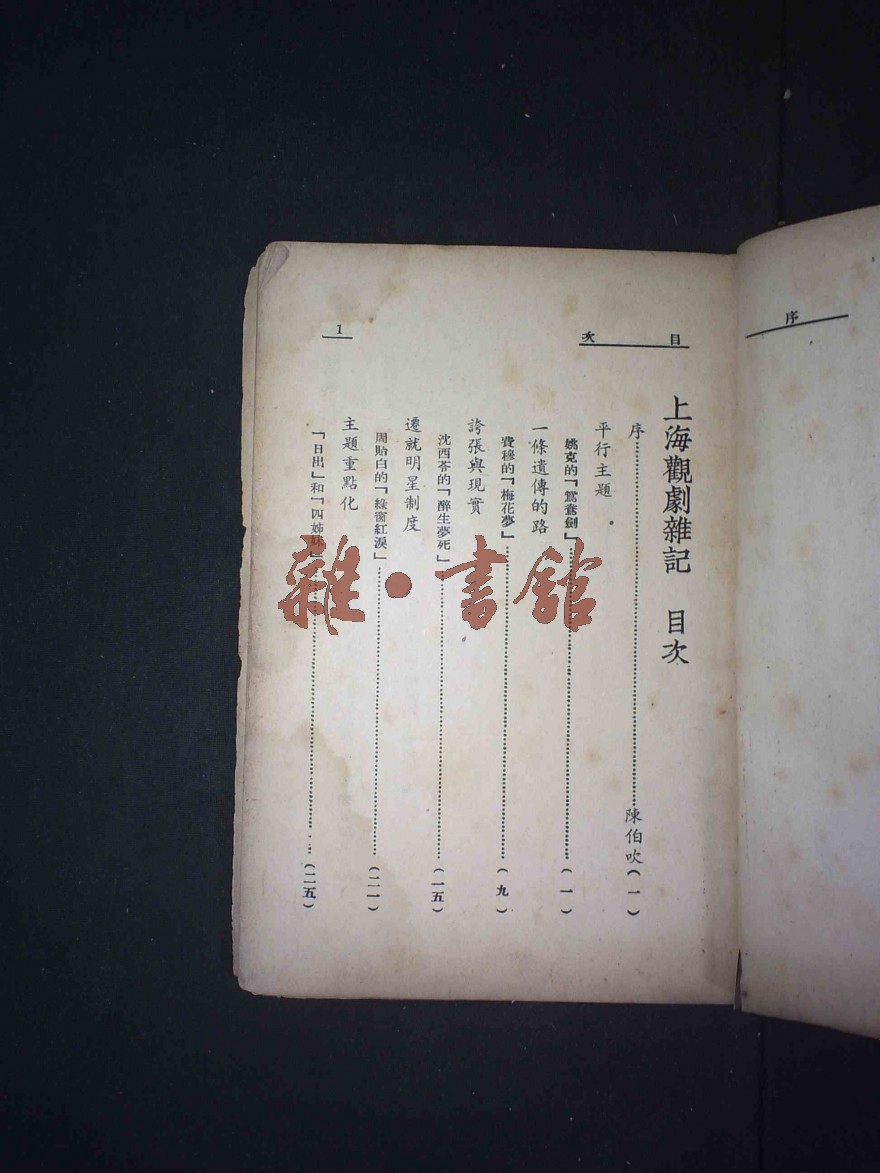 序
目次
上海觀劇雜記 目次
序……陳伯吹(一)
平行主題
姚克的「鴛鴦劍」……(一)
一條遺傳的路
費穆的「梅花夢」……(九)
誇張與現實
沈西苓的「醉生夢死」……(一五)
遷就明星制度
周貽白的「綠窗紅淚」……(二一)
主題重點化
「日出」和「四姊妹」……(二五)
1
雜·書館